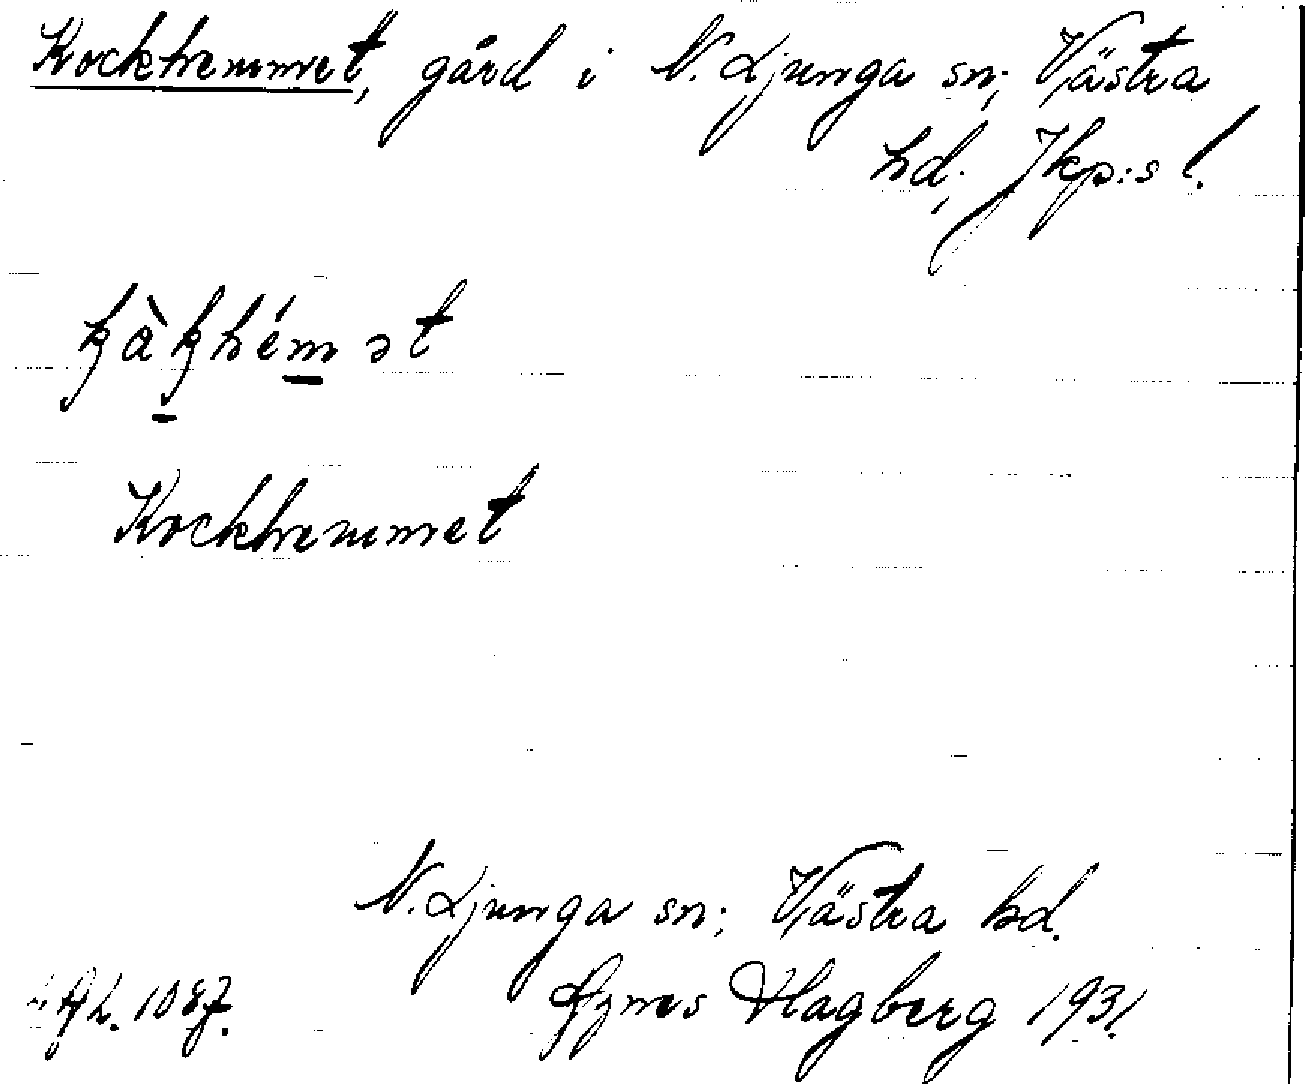 Kockhemmet, gård i N. Ljunga sn; Västra
hd; Jkp:s l.
kàkhémət
Kockhemmet
N. Ljunga sn; Västra hd.
Agnes Hagberg 1931.